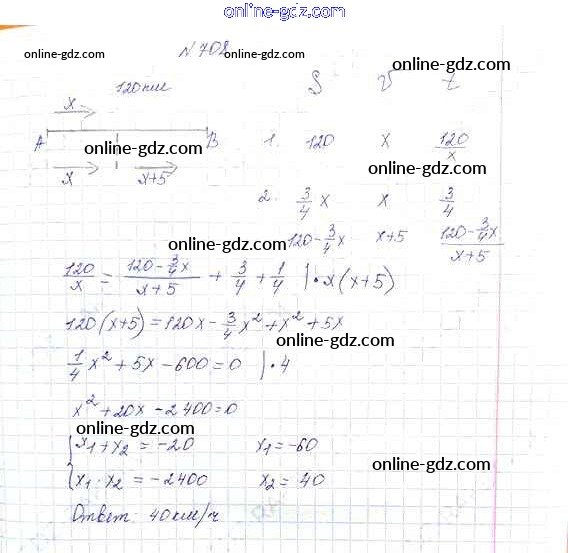 online-gdz.com
№ 708
online-gdz.com online-gdz.com online-gdz.com
120 км S V t
x
A B 1. 120 x 120/x
online-gdz.com online-gdz.com
x x+5
2. 3/4 x x 3/4
online-gdz.com
120-3/4x x+5 (120-3/4x)/(x+5)
120/x = (120-3/4x)/(x+5) + 3/4 + 1/4 | · x(x+5)
120(x+5)=120x-3/4x²+x²+5x
online-gdz.com
1/4x²+5x-600=0 | · 4
x²+20x-2400=0
online-gdz.com
{x₁+x₂=-20 x₁=-60
online-gdz.com
{x₁·x₂=-2400 x₂=40
Ответ: 40 км/ч